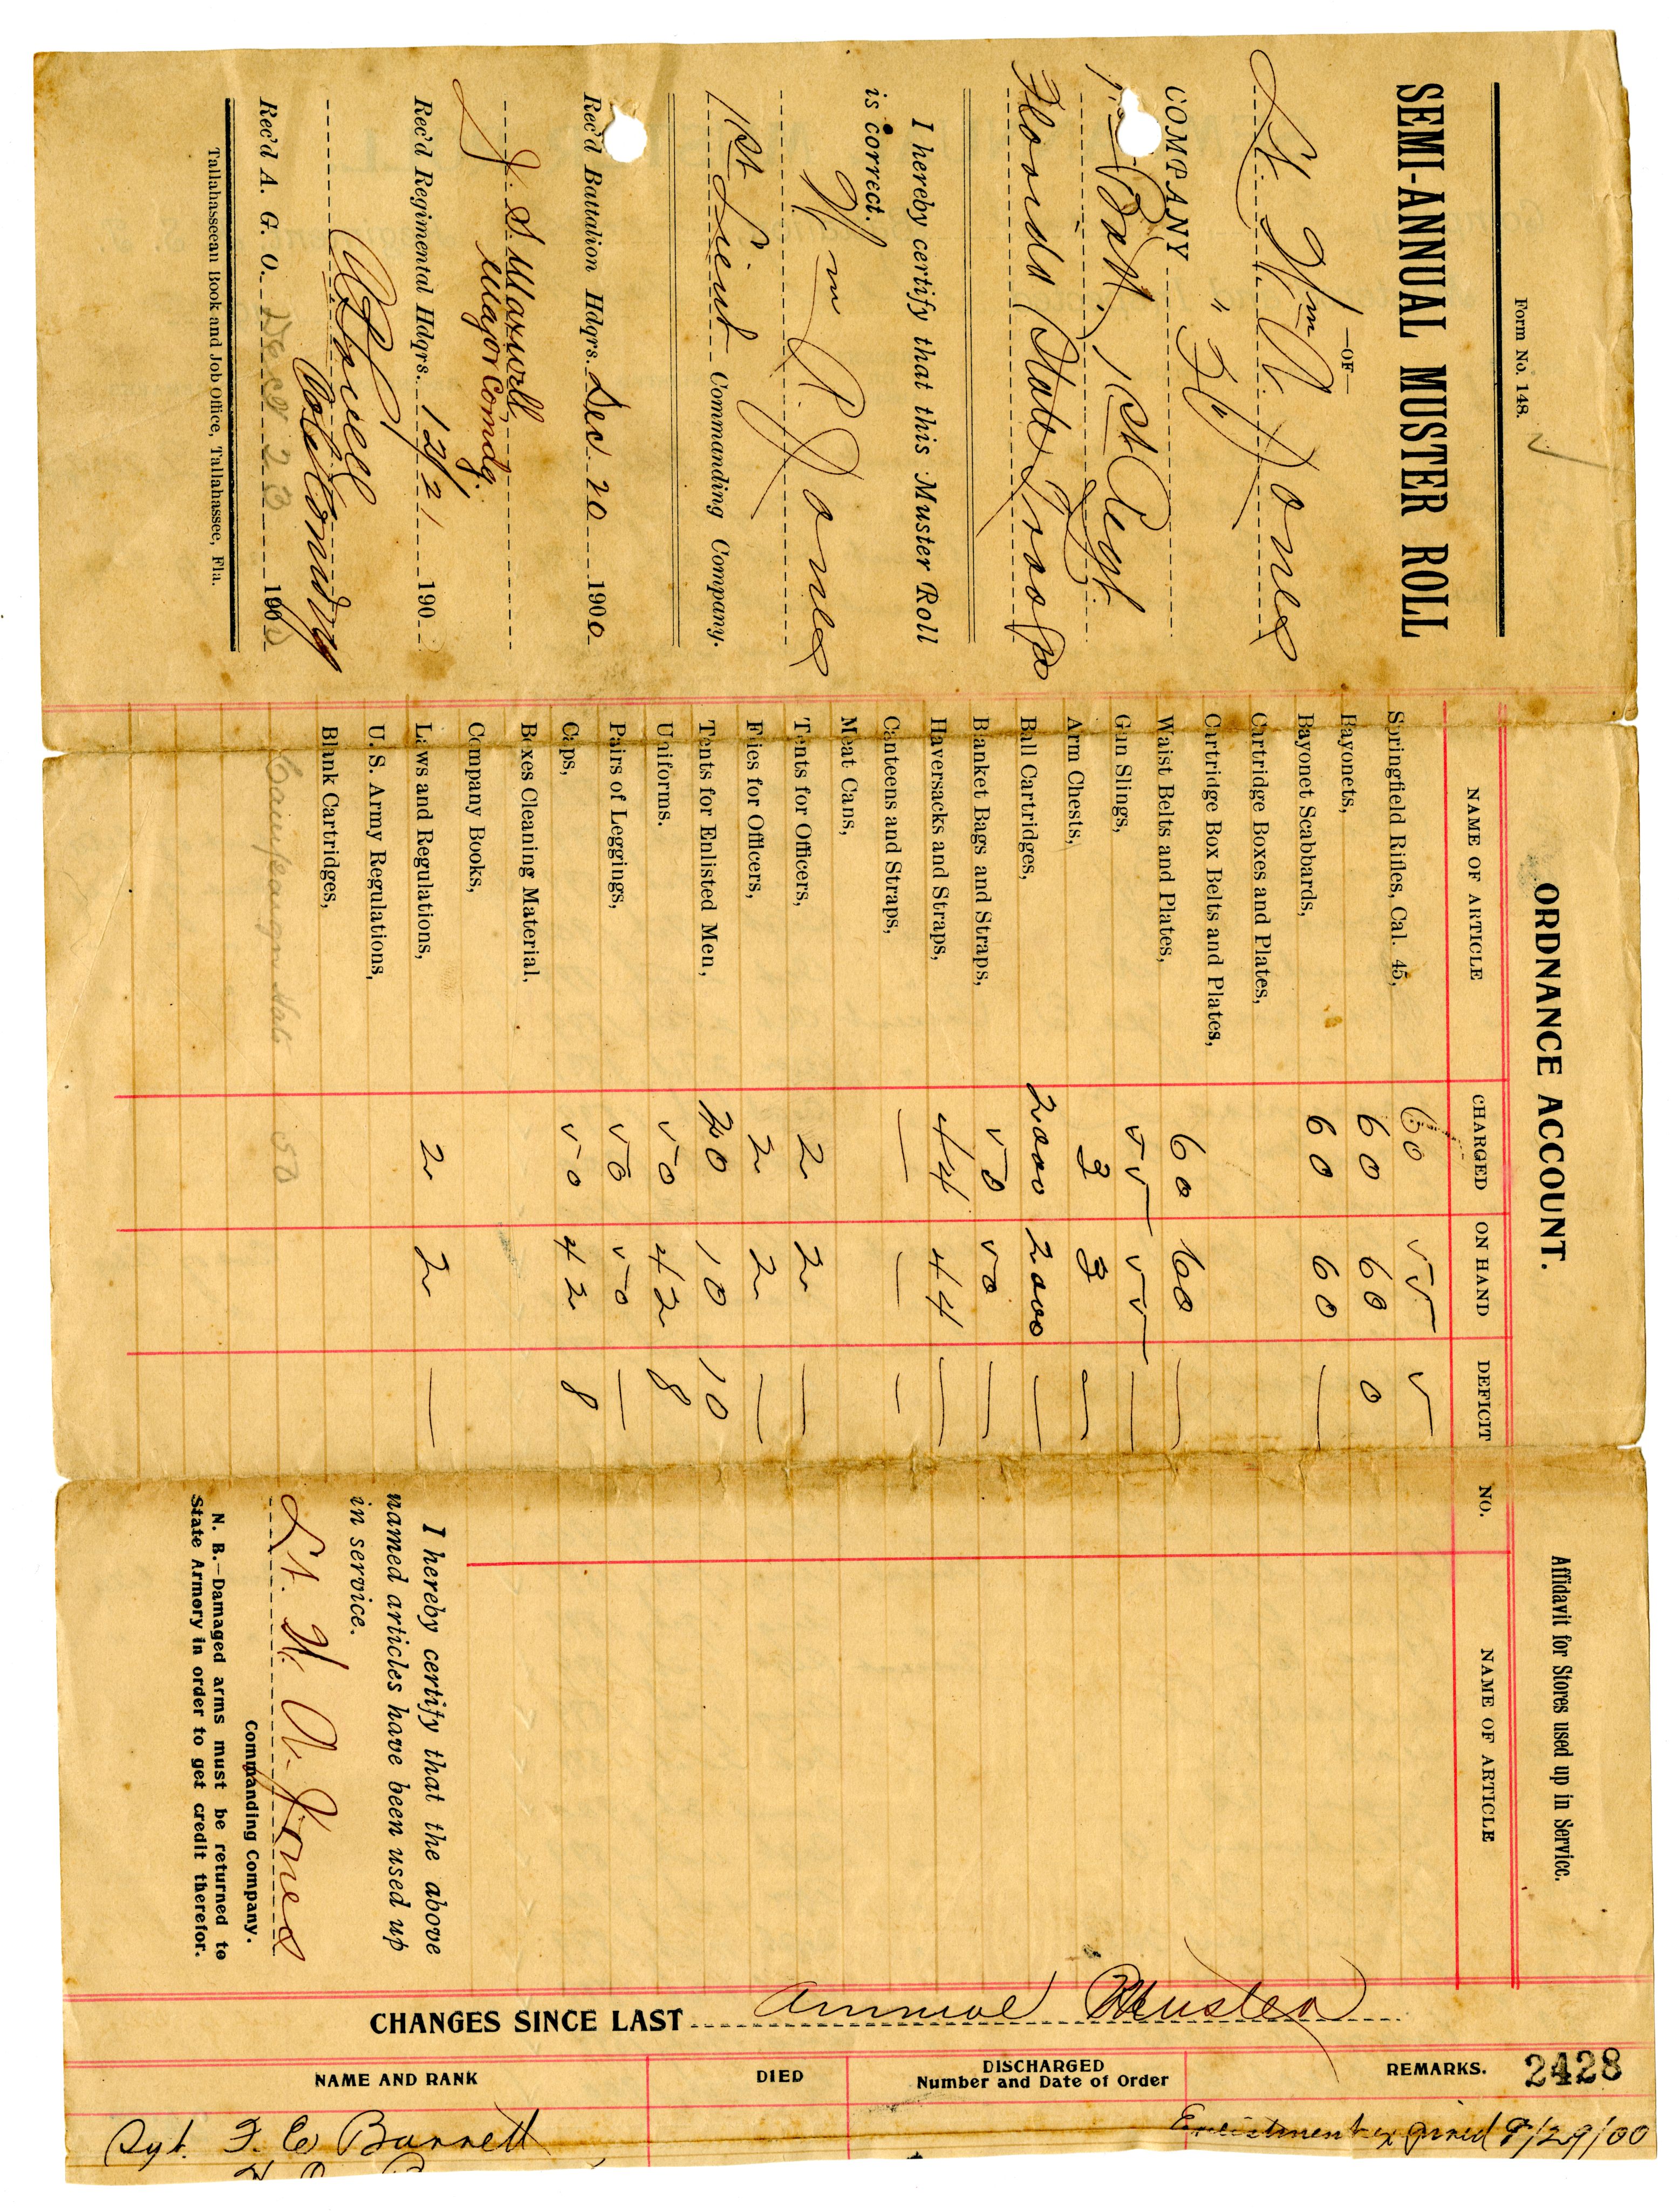 Form No. 148.
SEMI-ANNUAL MUSTER ROLL
—OF—
Lt. Wm R. Jones
COMPANY " F "
1st Batt. 1st Regt.
Florida State Troops
I hereby certify that this Muster Roll
is correct.
Wm R. Jones
1st Lieut Commanding Company.
Rec'd Battalion Hdqrs. Dec. 20 1900
J. S. Maxwell
Major Comdg.
Rec'd Regimental Hdqrs. 12/21 190
Col Comdg
Rec'd A. G. O. Decr 23 1900
Tallahasseean Book and Job Office, Tallahassee, Fla.
ORDNANCE ACCOUNT.
NAME OF ARTICLE CHARGED ON HAND DEFICIT
Springfield Rifles, Cal. 45, 60 55 5
Bayonets, 60 60 0
Bayonet Scabbards, 60 60 —
Cartridge Boxes and Plates,
Cartridge Box Belts and Plates,
Waist Belts and Plates, 60 60 —
Gun Slings, 55 55 —
Arm Chests, 3 3 —
Ball Cartridges, 2000 2000 —
Blanket Bags and Straps, 50 50 —
Haversacks and Straps, 44 44 —
Canteens and Straps, — — —
Meat Cans,
Tents for Officers, 2 2 —
Flies for Officers, 2 2 —
Tents for Enlisted Men, 20 10 10
Uniforms. 50 42 8
Pairs of Leggings, 50 50 —
Caps, 50 42 8
Boxes Cleaning Material,
Company Books,
Laws and Regulations, 2 2 —
U. S. Army Regulations,
Blank Cartridges,
Campaign Hats 50
Affidavit for Stores used up in Service.
NO. NAME OF ARTICLE
I hereby certify that the above
named articles have been used up
in service.
Lt. W. R. Jones
Commanding Company.
N. B.—Damaged arms must be returned to
State Armory in order to get credit therefor.
CHANGES SINCE LAST Annual Muster
NAME AND RANK DIED DISCHARGED Number and Date of Order REMARKS.
2428
Sgt. F. E. Barnett Enlistment expired 9/29/00